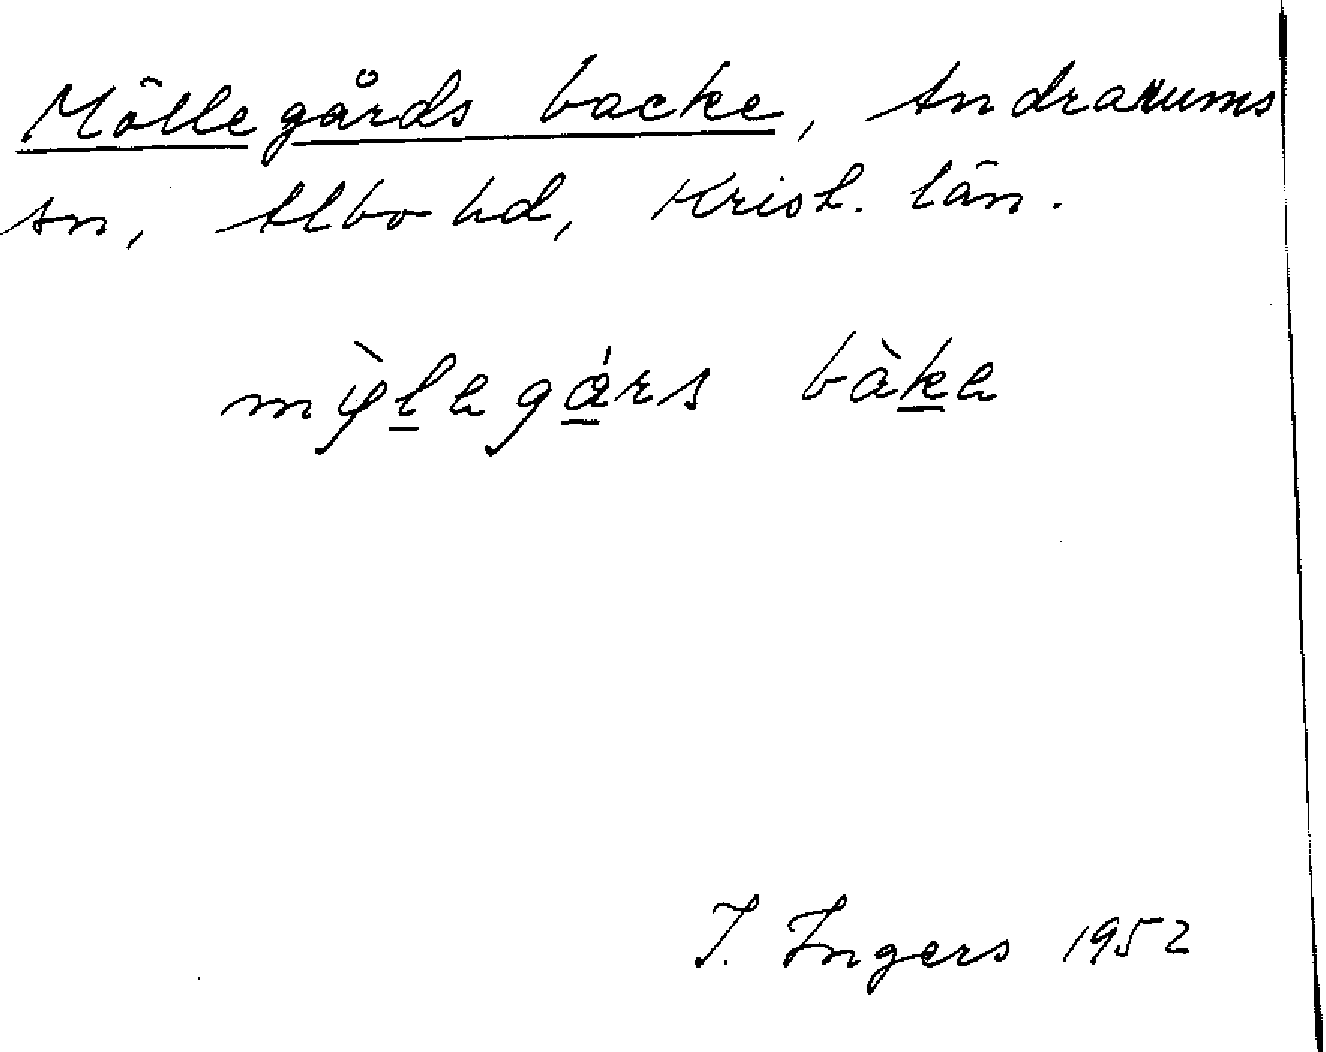 Möllegårds backe, Andrarums
sn, Albo hd, Krist. län.
mỳlegárs bàke
I. Ingers 1952